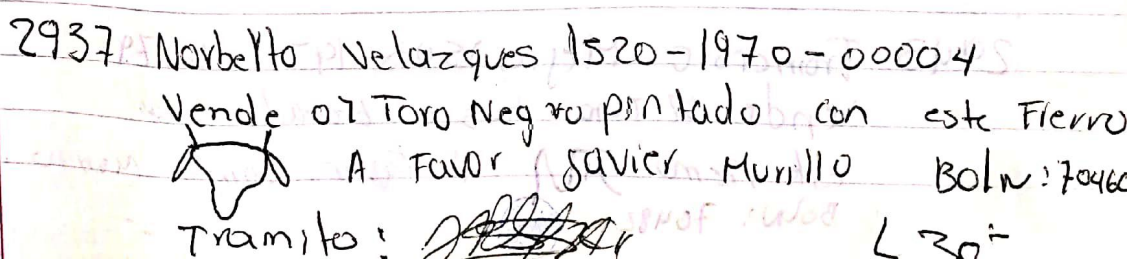 2937 Norbelto Velazques 1520-1970-00004
Vende 01 Toro Negro pintado con este Fierro
A Favor Javier Murillo Boln: 70460
Tramito:
L 30